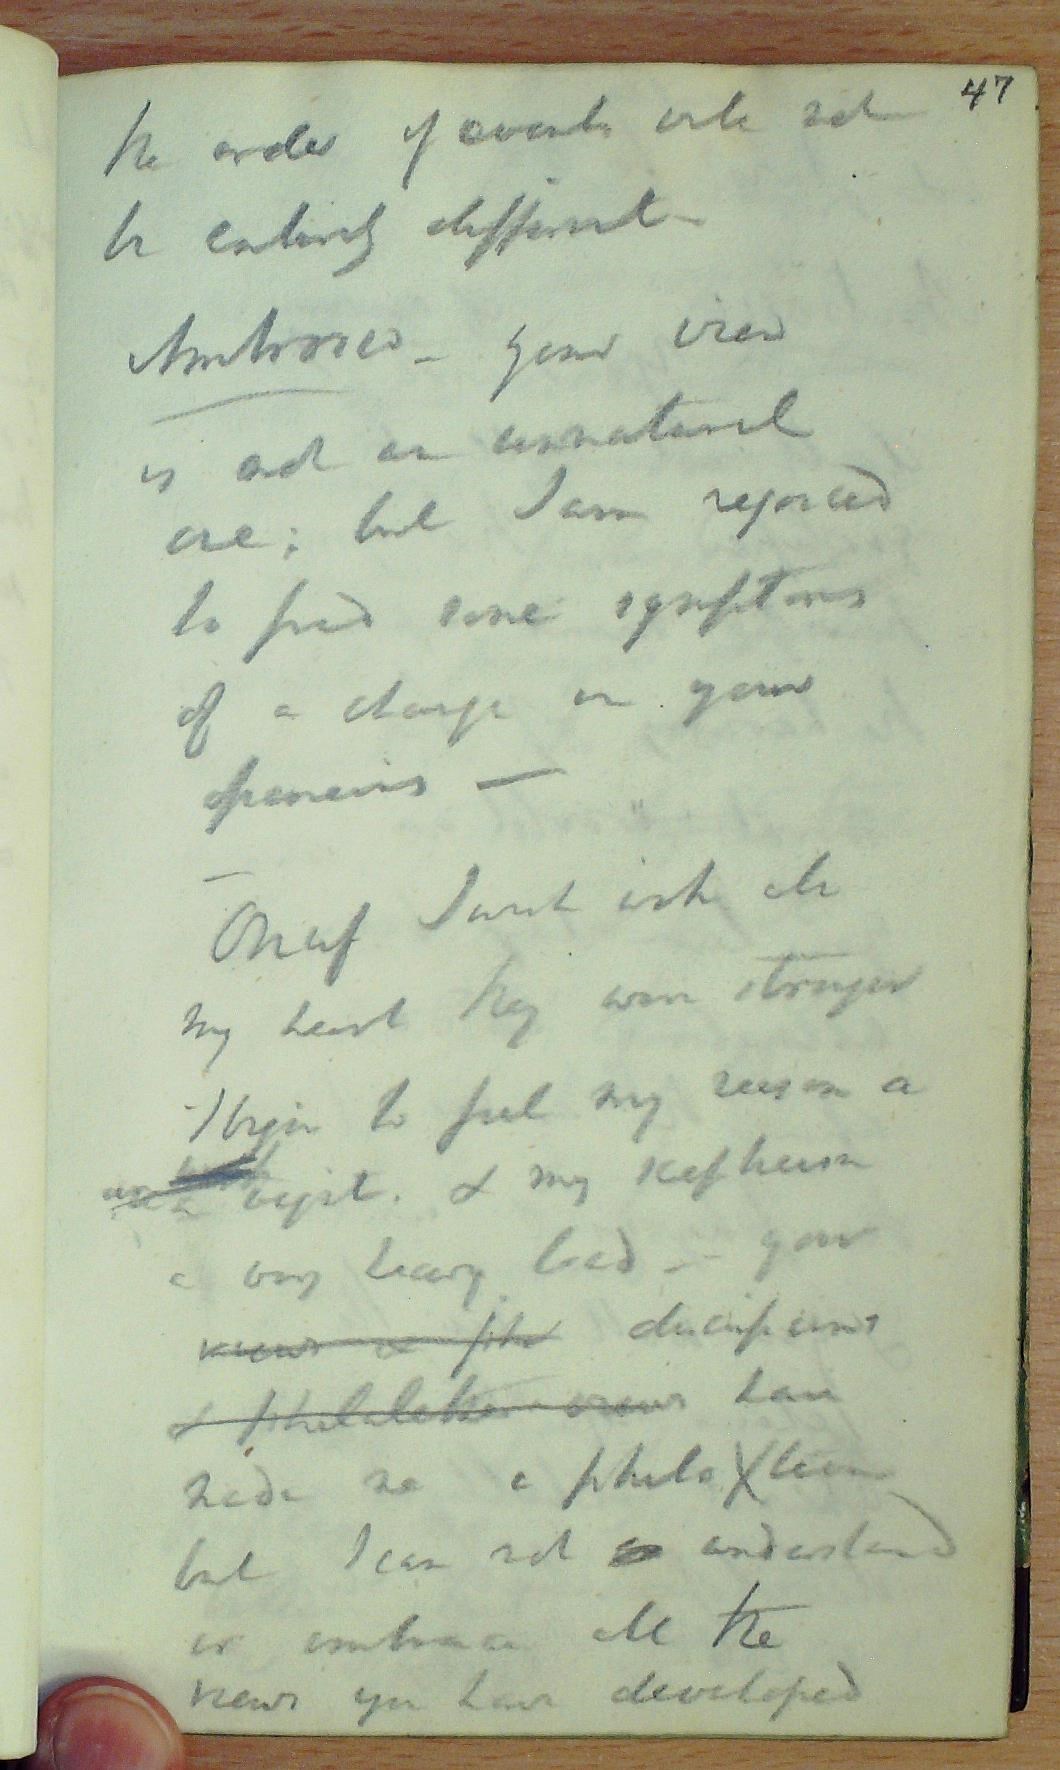 47
the order of events will not
be entirely different -
Ambrosio - your view
is not an unnatural
one; but I am rejoiced
to find some symptoms
of a change in your
opinions —
- Onuf I wish with all
my heart they were stronger
I begin to feel my reason a
weight. & my scepticism
a very heavy load - your
views &
discussions
& Philalethes views have
made me a phila
but I can not understand
or embrace all the
views you have developed